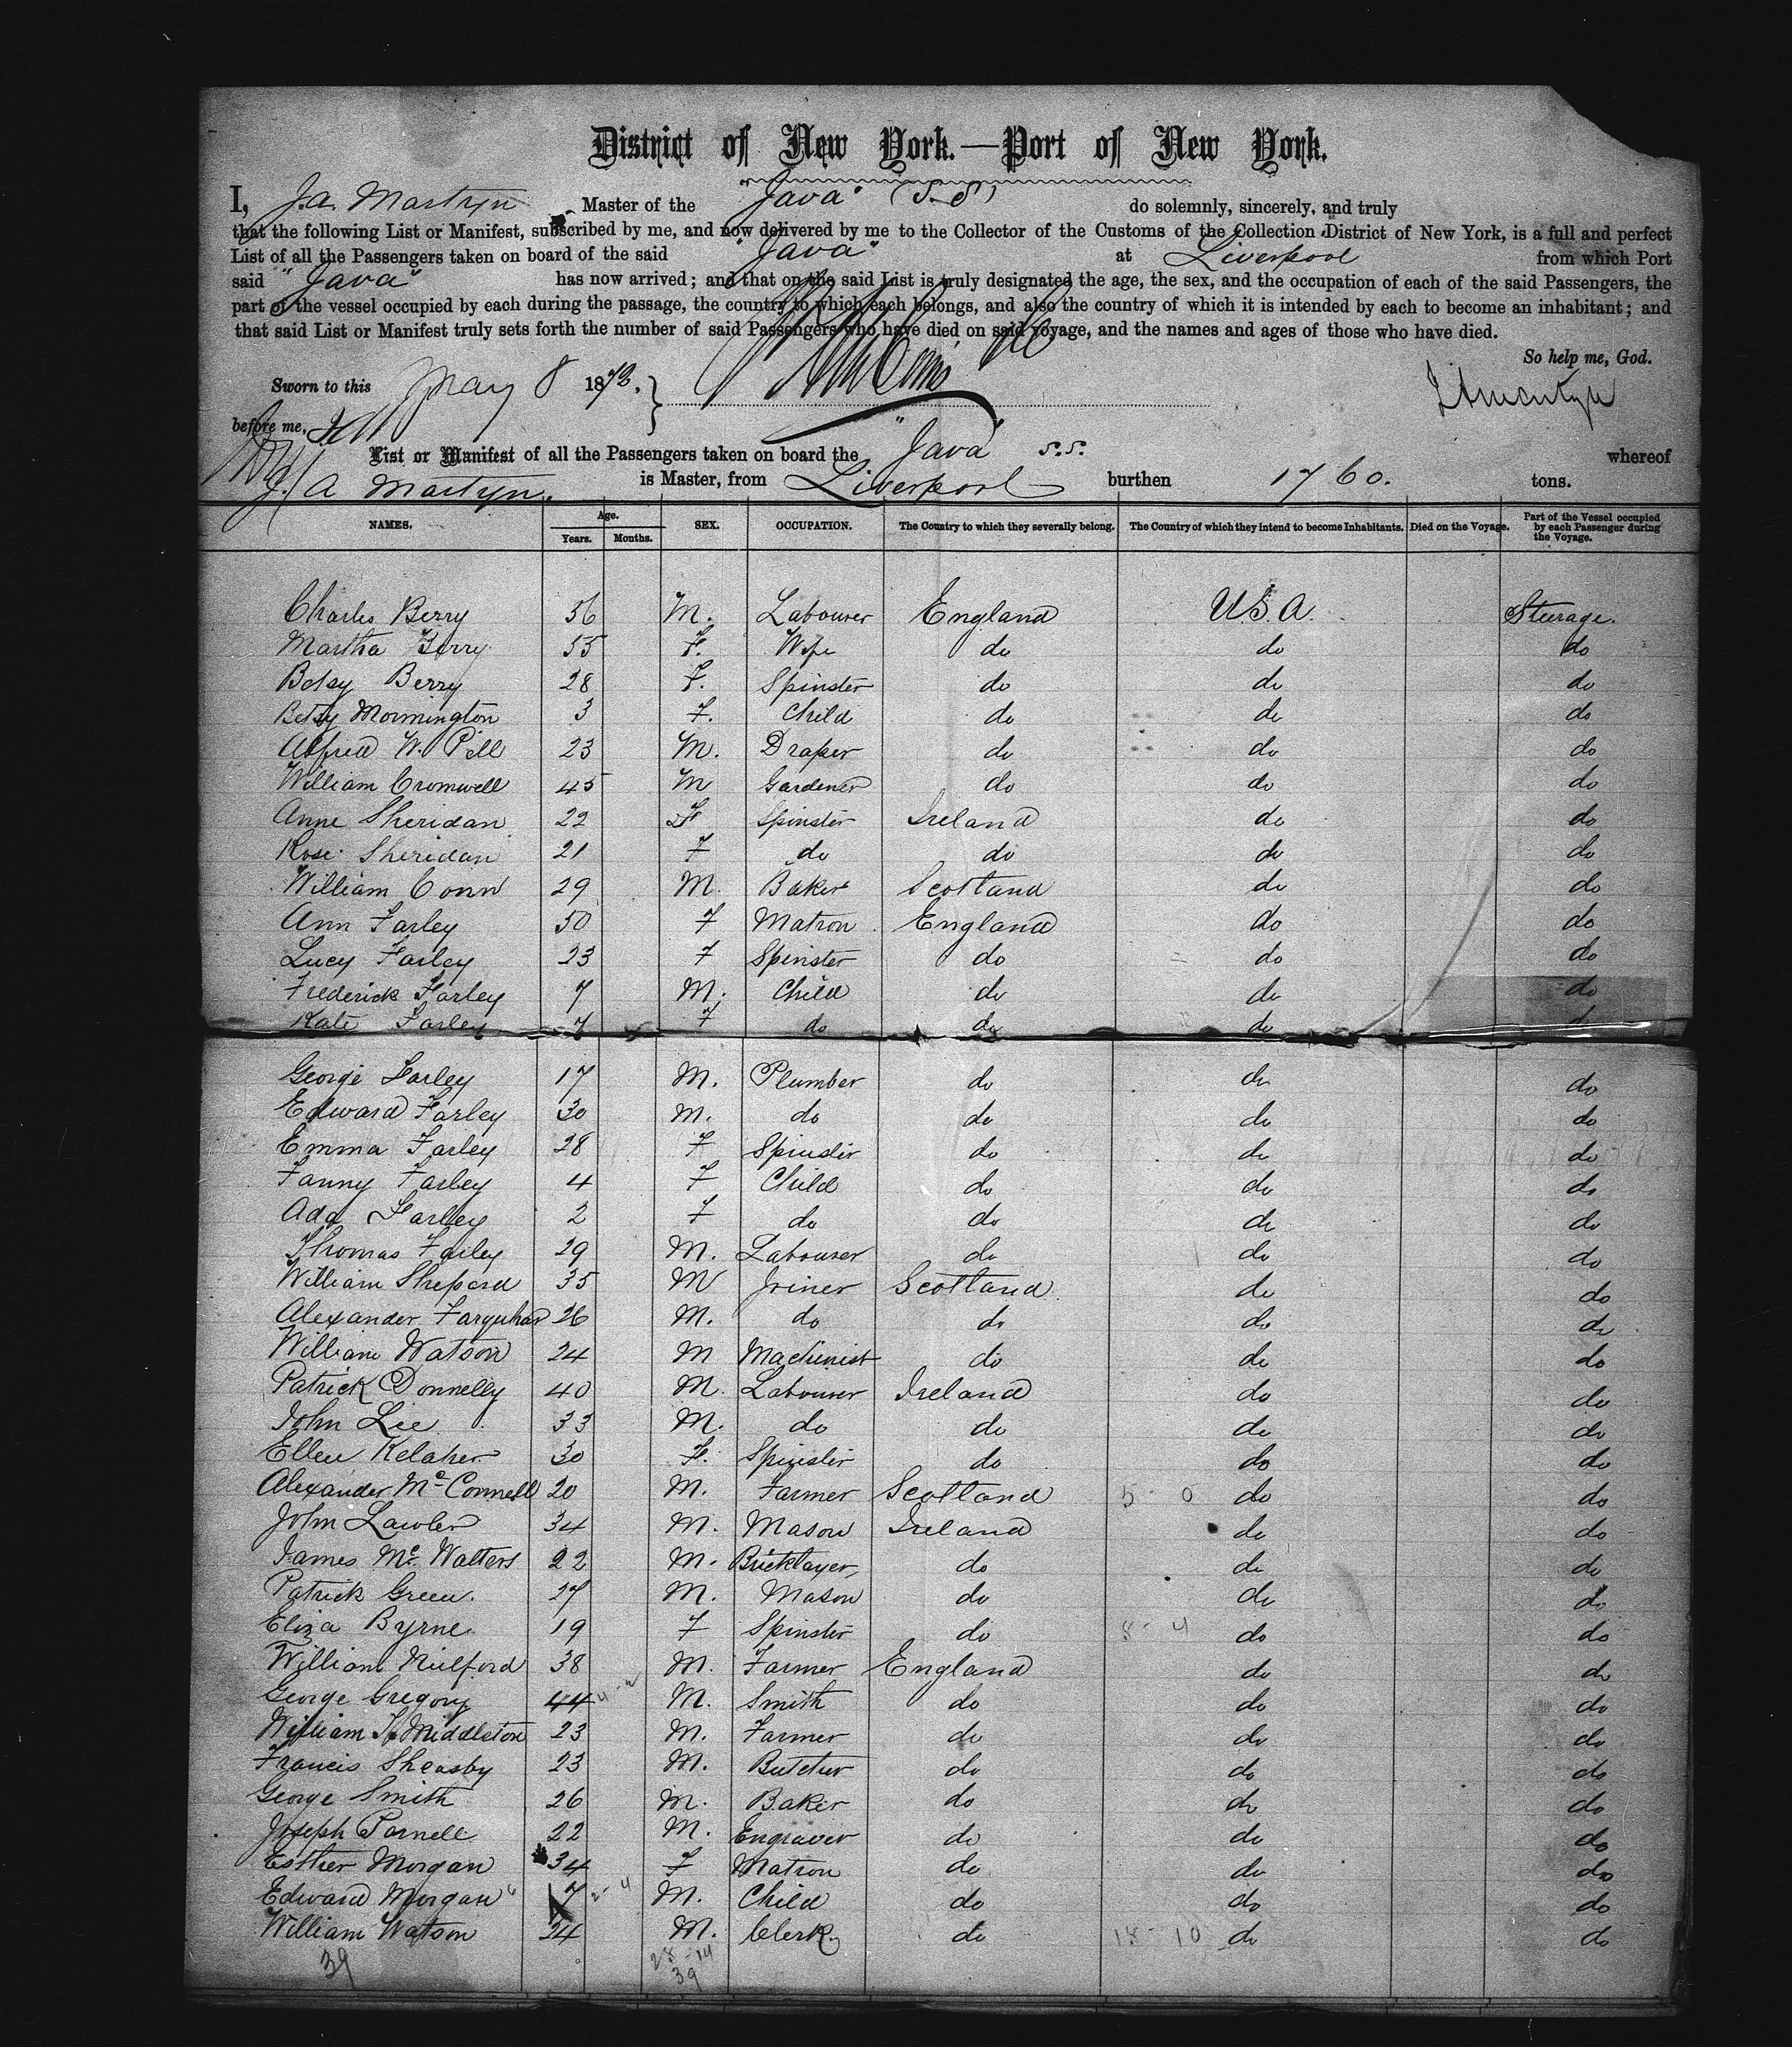 District of New York.—Port of New York.
I, J. A. Martyn Master of the "Java" (S.S) do solemnly, sincerely, and truly
that the following List or Manifest, subscribed by me, and now delivered by me to the Collector of the Customs of the Collection District of New York, is a full and perfect
List of all the Passengers taken on board of the said "Java" at Liverpool from which Port
said "Java" has now arrived; and that on the said List is truly designated the age, the sex, and the occupation of each of the said Passengers, the
part of the vessel occupied by each during the passage, the country to which each belongs, and also the country of which it is intended by each to become an inhabitant; and
that said List or Manifest truly sets forth the number of said Passengers who have died on said voyage, and the names and ages of those who have died.
So help me, God.
Sworn to this May 8 1872. J A Martyn
before me,
List or Manifest of all the Passengers taken on board the "Java" S.S. whereof
J. A Martyn. is Master, from Liverpool burthen 1760. tons.
NAMES. Age. Years. Months. SEX. OCCUPATION. The Country to which they severally belong. The Country of which they intend to become Inhabitants. Died on the Voyage. Part of the Vessel occupied by each Passenger during the Voyage.
Charles Berry 56 M. Labourer England U.S.A. Steerage.
Martha Berry 55 F. Wife do do do
Betsy Berry 28 F. Spinster do do do
Betsy Mormington 3 F. Child do do do
Alfred W. Pill 23 M. Draper do do do
William Cromwell 45 M Gardener do do do
Anne Sheridan 22 F Spinster Ireland do do
Rose Sheridan 21 F do do do do
William Conn 29 M. Baker Scotland do do
Ann Farley 50 F Matron England do do
Lucy Farley 23 F Spinster do do do
Frederick Farley 7 M. Child do do do
Kate Farley 7 F do do do do
George Farley 17 M. Plumber do do do
Edward Farley 30 M. do do do do
Emma Farley 28 F Spinster do do do
Fanny Farley 4 F Child do do do
Ada Farley 2 F do do do do
Thomas Farley 29 M. Labourer do do do
William Shepard 35 M Joiner Scotland do do
Alexander Farquhar 26 M. do do do do
William Watson 24 M Machinist do do do
Patrick Donnelly 40 M. Labourer Ireland do do
John Lee 33 M. do do do do
Ellen Kelaher 30 F. Spinster do do do
Alexander McConnell 20 M. Farmer Scotland 5 - 0 do do
John Lawler 34 M. Mason Ireland do do
James Mc Walters 22 M. Bricklayer, do do do
Patrick Green. 27 M. Mason do do do
Eliza Byrne. 19 F Spinster do 8 - 4 do do
William Milford 38 M. Farmer England do do
George Gregory 44 M. Smith do do do
William H. Middleton 23 M. Farmer do do do
Francis Sheasby 23 M. Butcher do do do
George Smith 26 M. Baker do do do
Joseph Parnell 22 M. Engraver do do do
Esther Morgan 34 F Matron do do do
Edward Morgan 7 2-4 M. Child do do do
William Watson 24 M. Clerk do 18 - 10 do do
39 28-14
39